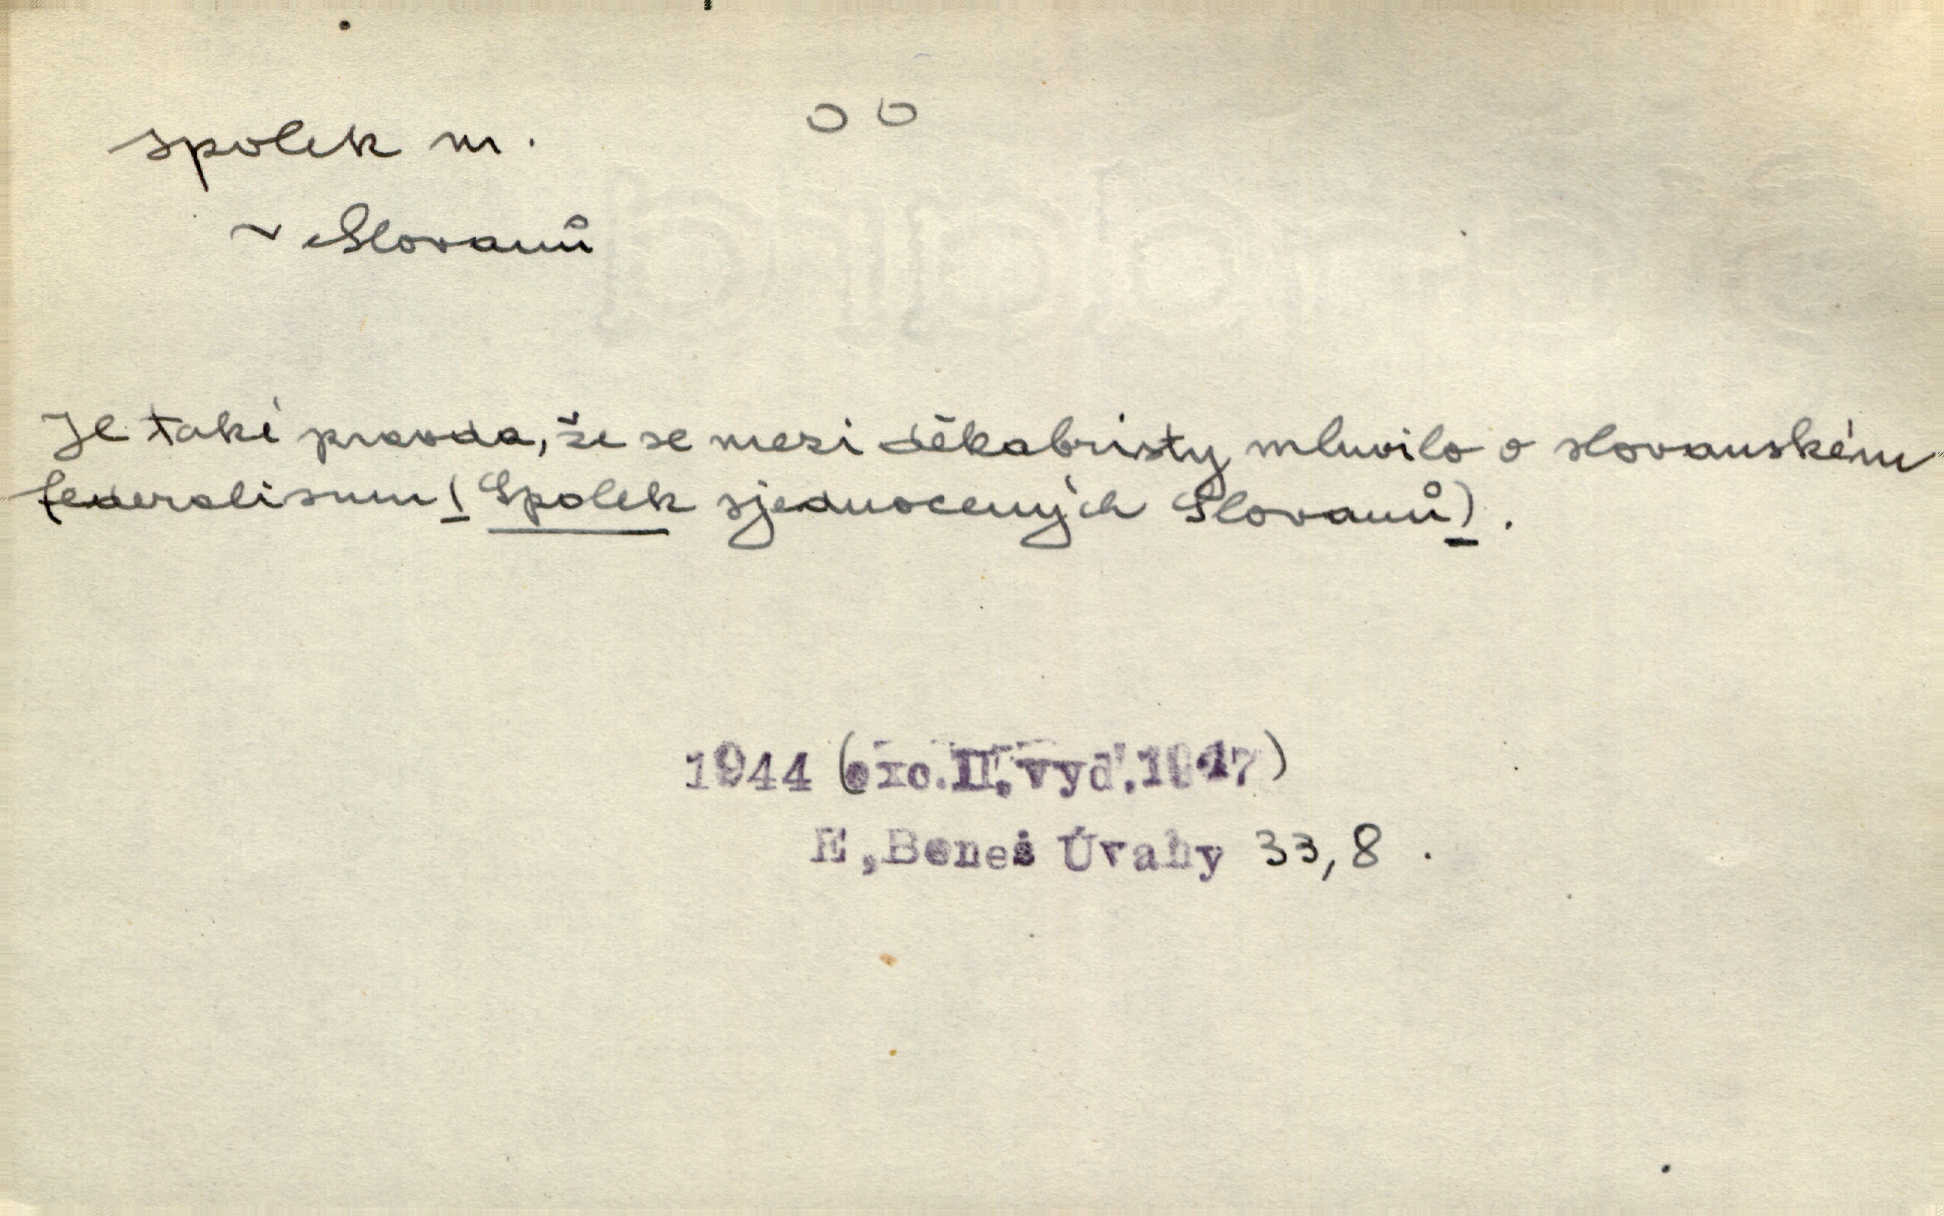 spolek m.
~ Slovanů
Je také pravda, že se mezi děkabristy mluvilo o slovanském
federalismu (Spolek sjednocených Slovanů).
1944 (exc.II.vyd.1947)
E,Beneš Úvahy 33,8.